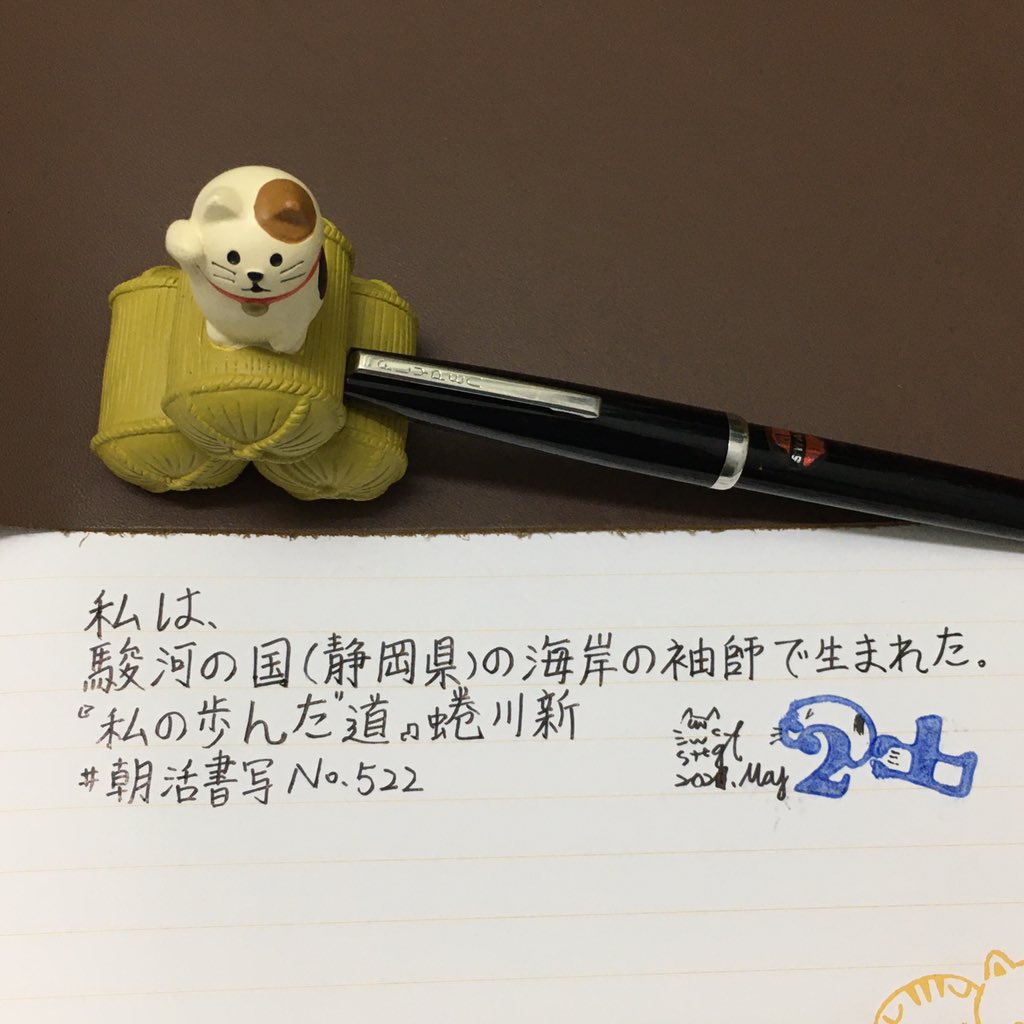 PLUMPEN
私は、
駿河の国(静岡県)の海岸の袖師で生まれた。
『私の歩んだ道』蜷川新
#朝活書写 No.522
stegt
2021.May
24